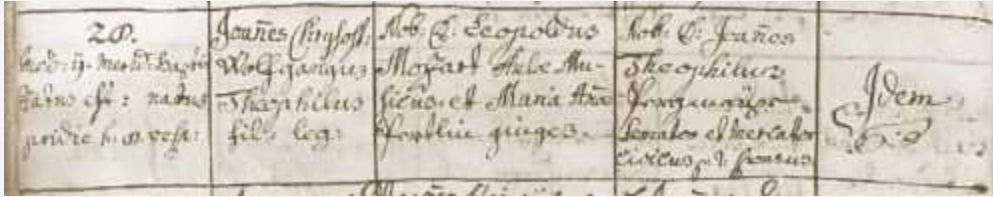 28.
merid: bapti
zatus est: natus
pridie h. 8. vesp:
Joañes Chrysost:
Wolfgangus
Theophilus
fil: leg:
Nob: D: Leopoldus
Mozart Aulæ Mu-
sicus, et Maria Aña
Pertlin giuges.
Nob: D: Joañes
Theophilus
Pergmayr
Senator et Mercator
civicus p. t. sponsus
Idem